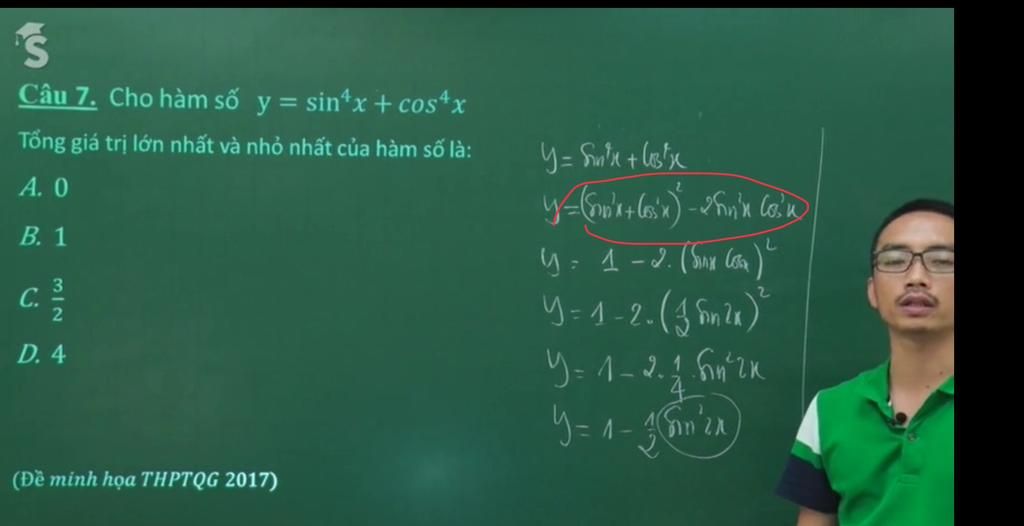 S
Câu 7. Cho hàm số y = sin⁴x + cos⁴x
Tổng giá trị lớn nhất và nhỏ nhất của hàm số là:
A. 0
B. 1
C. 3/2
D. 4
(Đề minh họa THPTQG 2017)
y = sin⁴x + cos⁴x
y = (sin²x + cos²x)² - 2sin²x cos²x
y = 1 - 2.(sinx cosx)²
y = 1 - 2.(1/2 sin2x)²
y = 1 - 2.1/4.sin²2x
y = 1 - 1/2 sin²2x